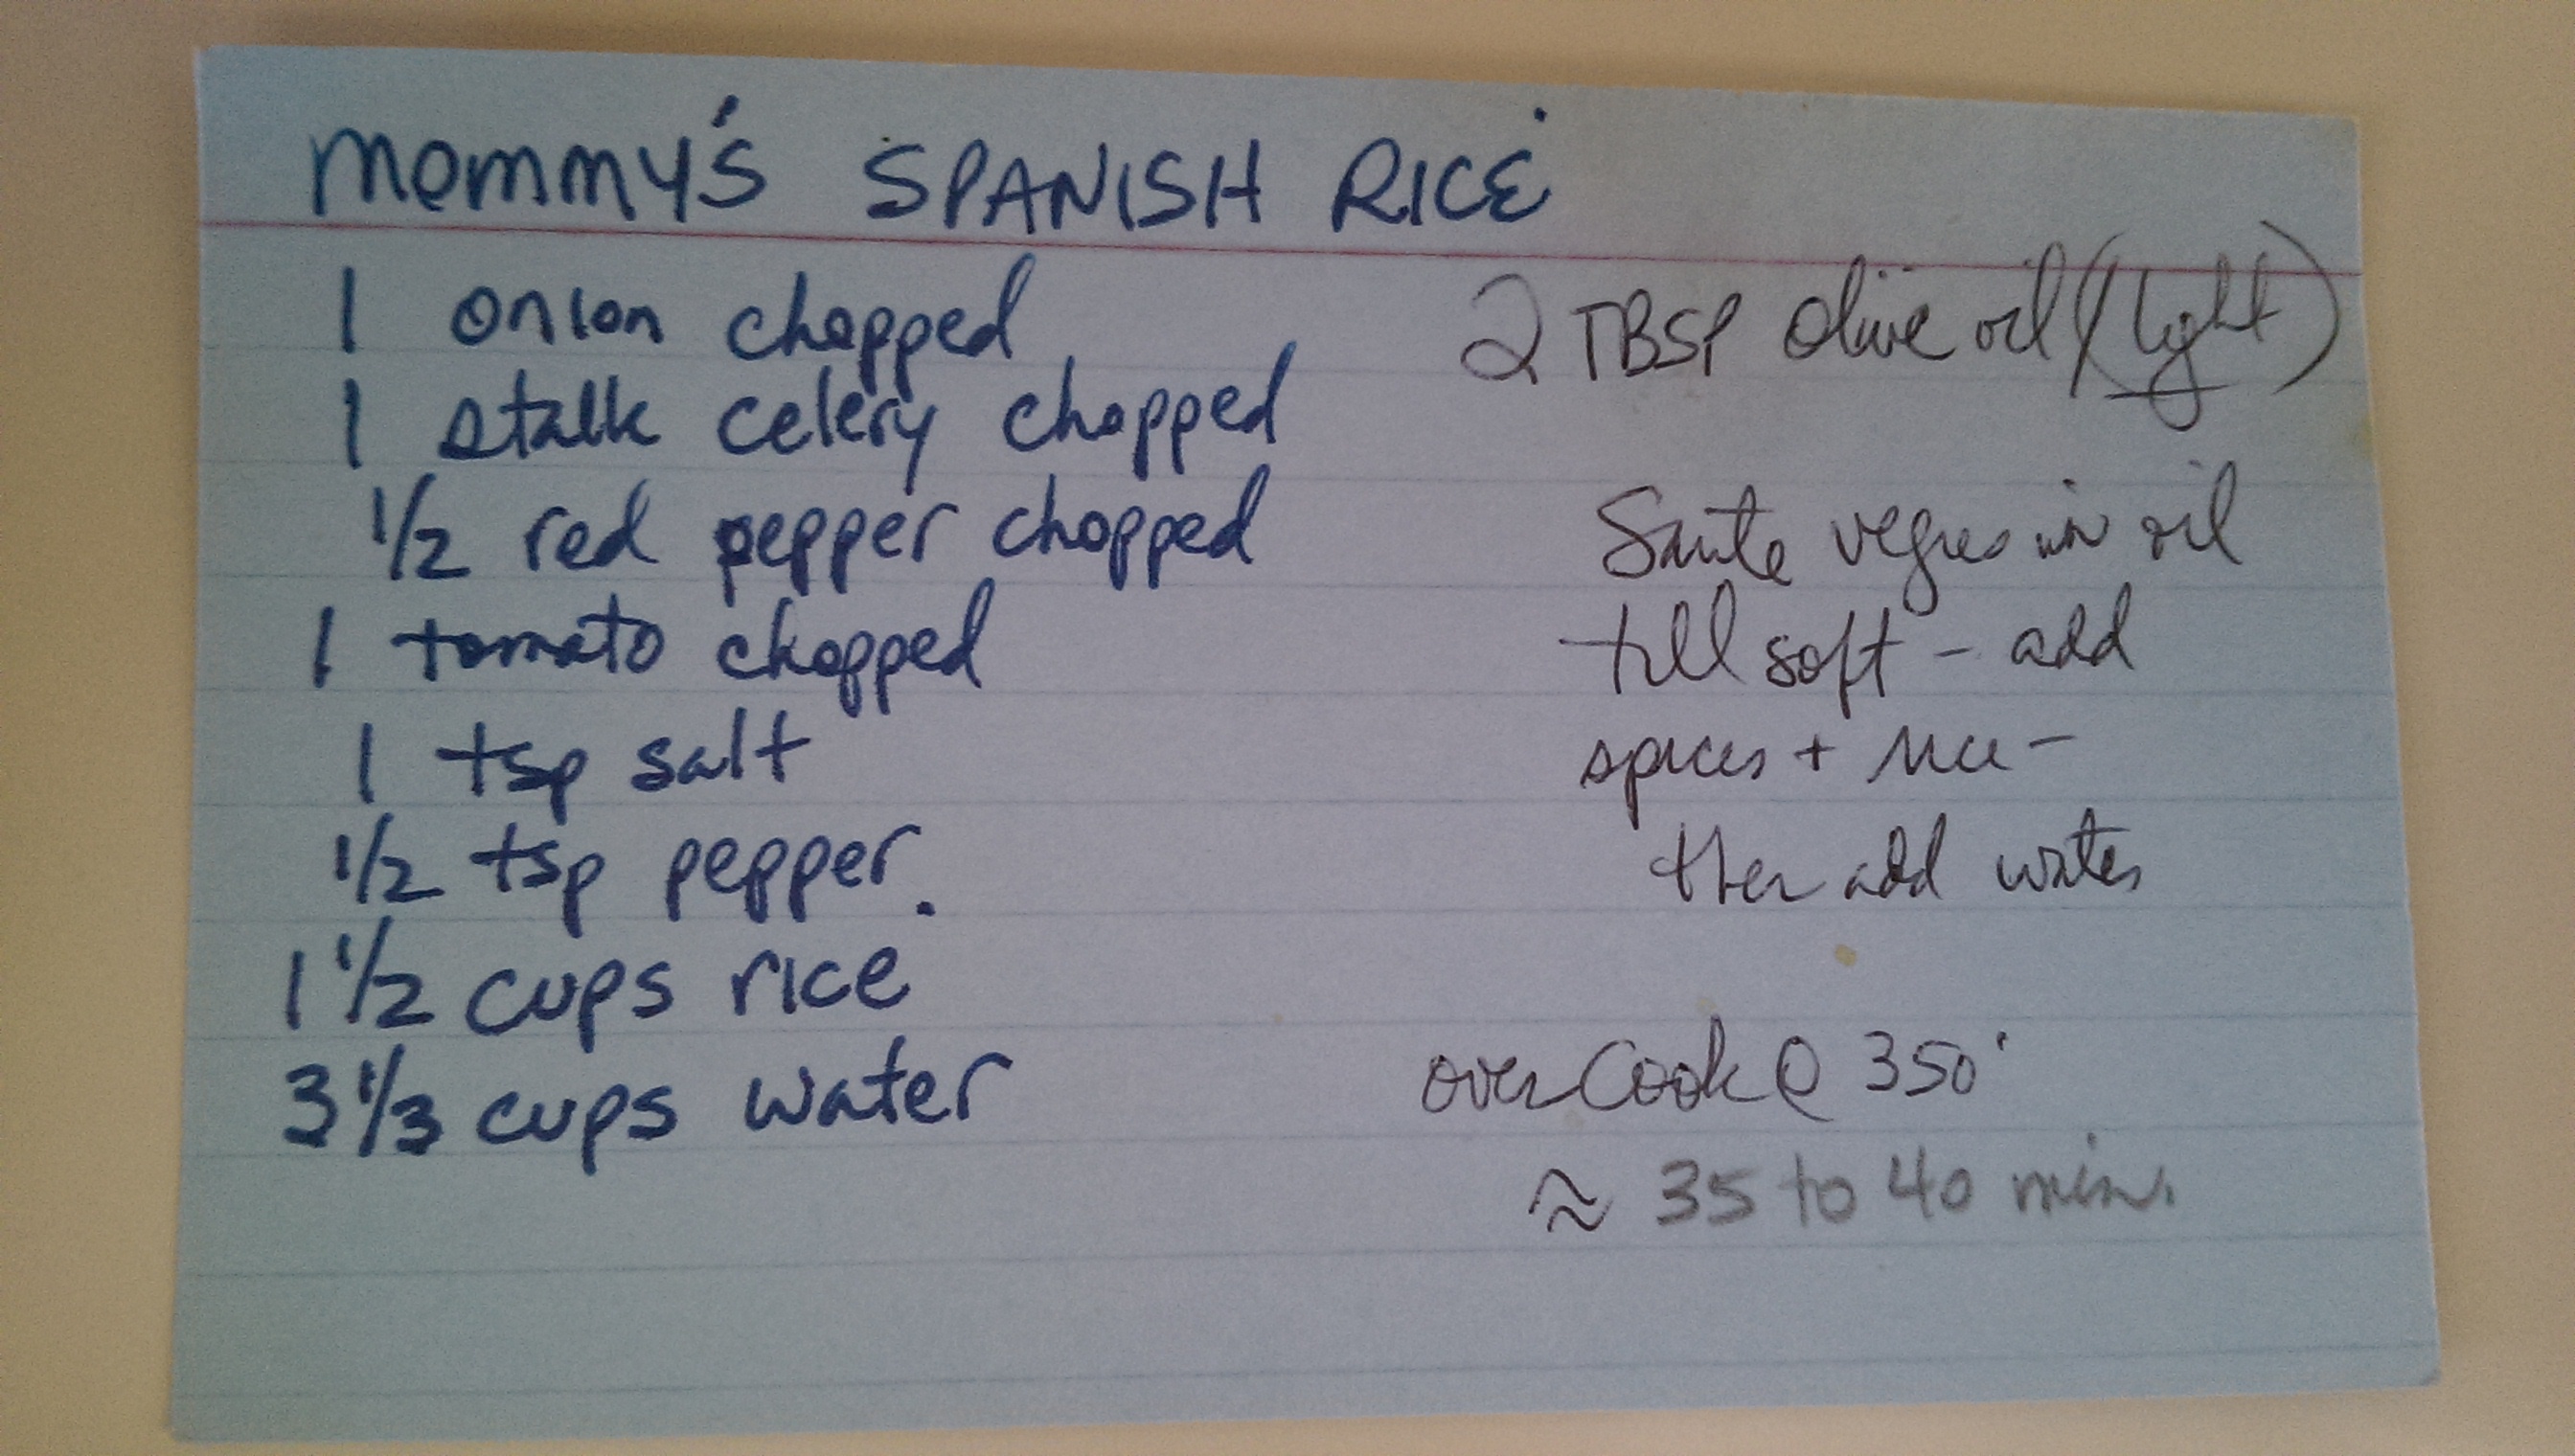 Mommy's SPANISH RICE
1 onion chopped
1 stalk celery chopped
1/2 red pepper chopped
1 tomato chopped
1 tsp salt
1/2 tsp pepper.
1 1/2 cups rice
3 1/3 cups water
2 TBSP olive oil (light)
Saute vegies in oil
till soft - add
spices + rice -
then add water
oven Cook @ 350°
≈ 35 to 40 min.